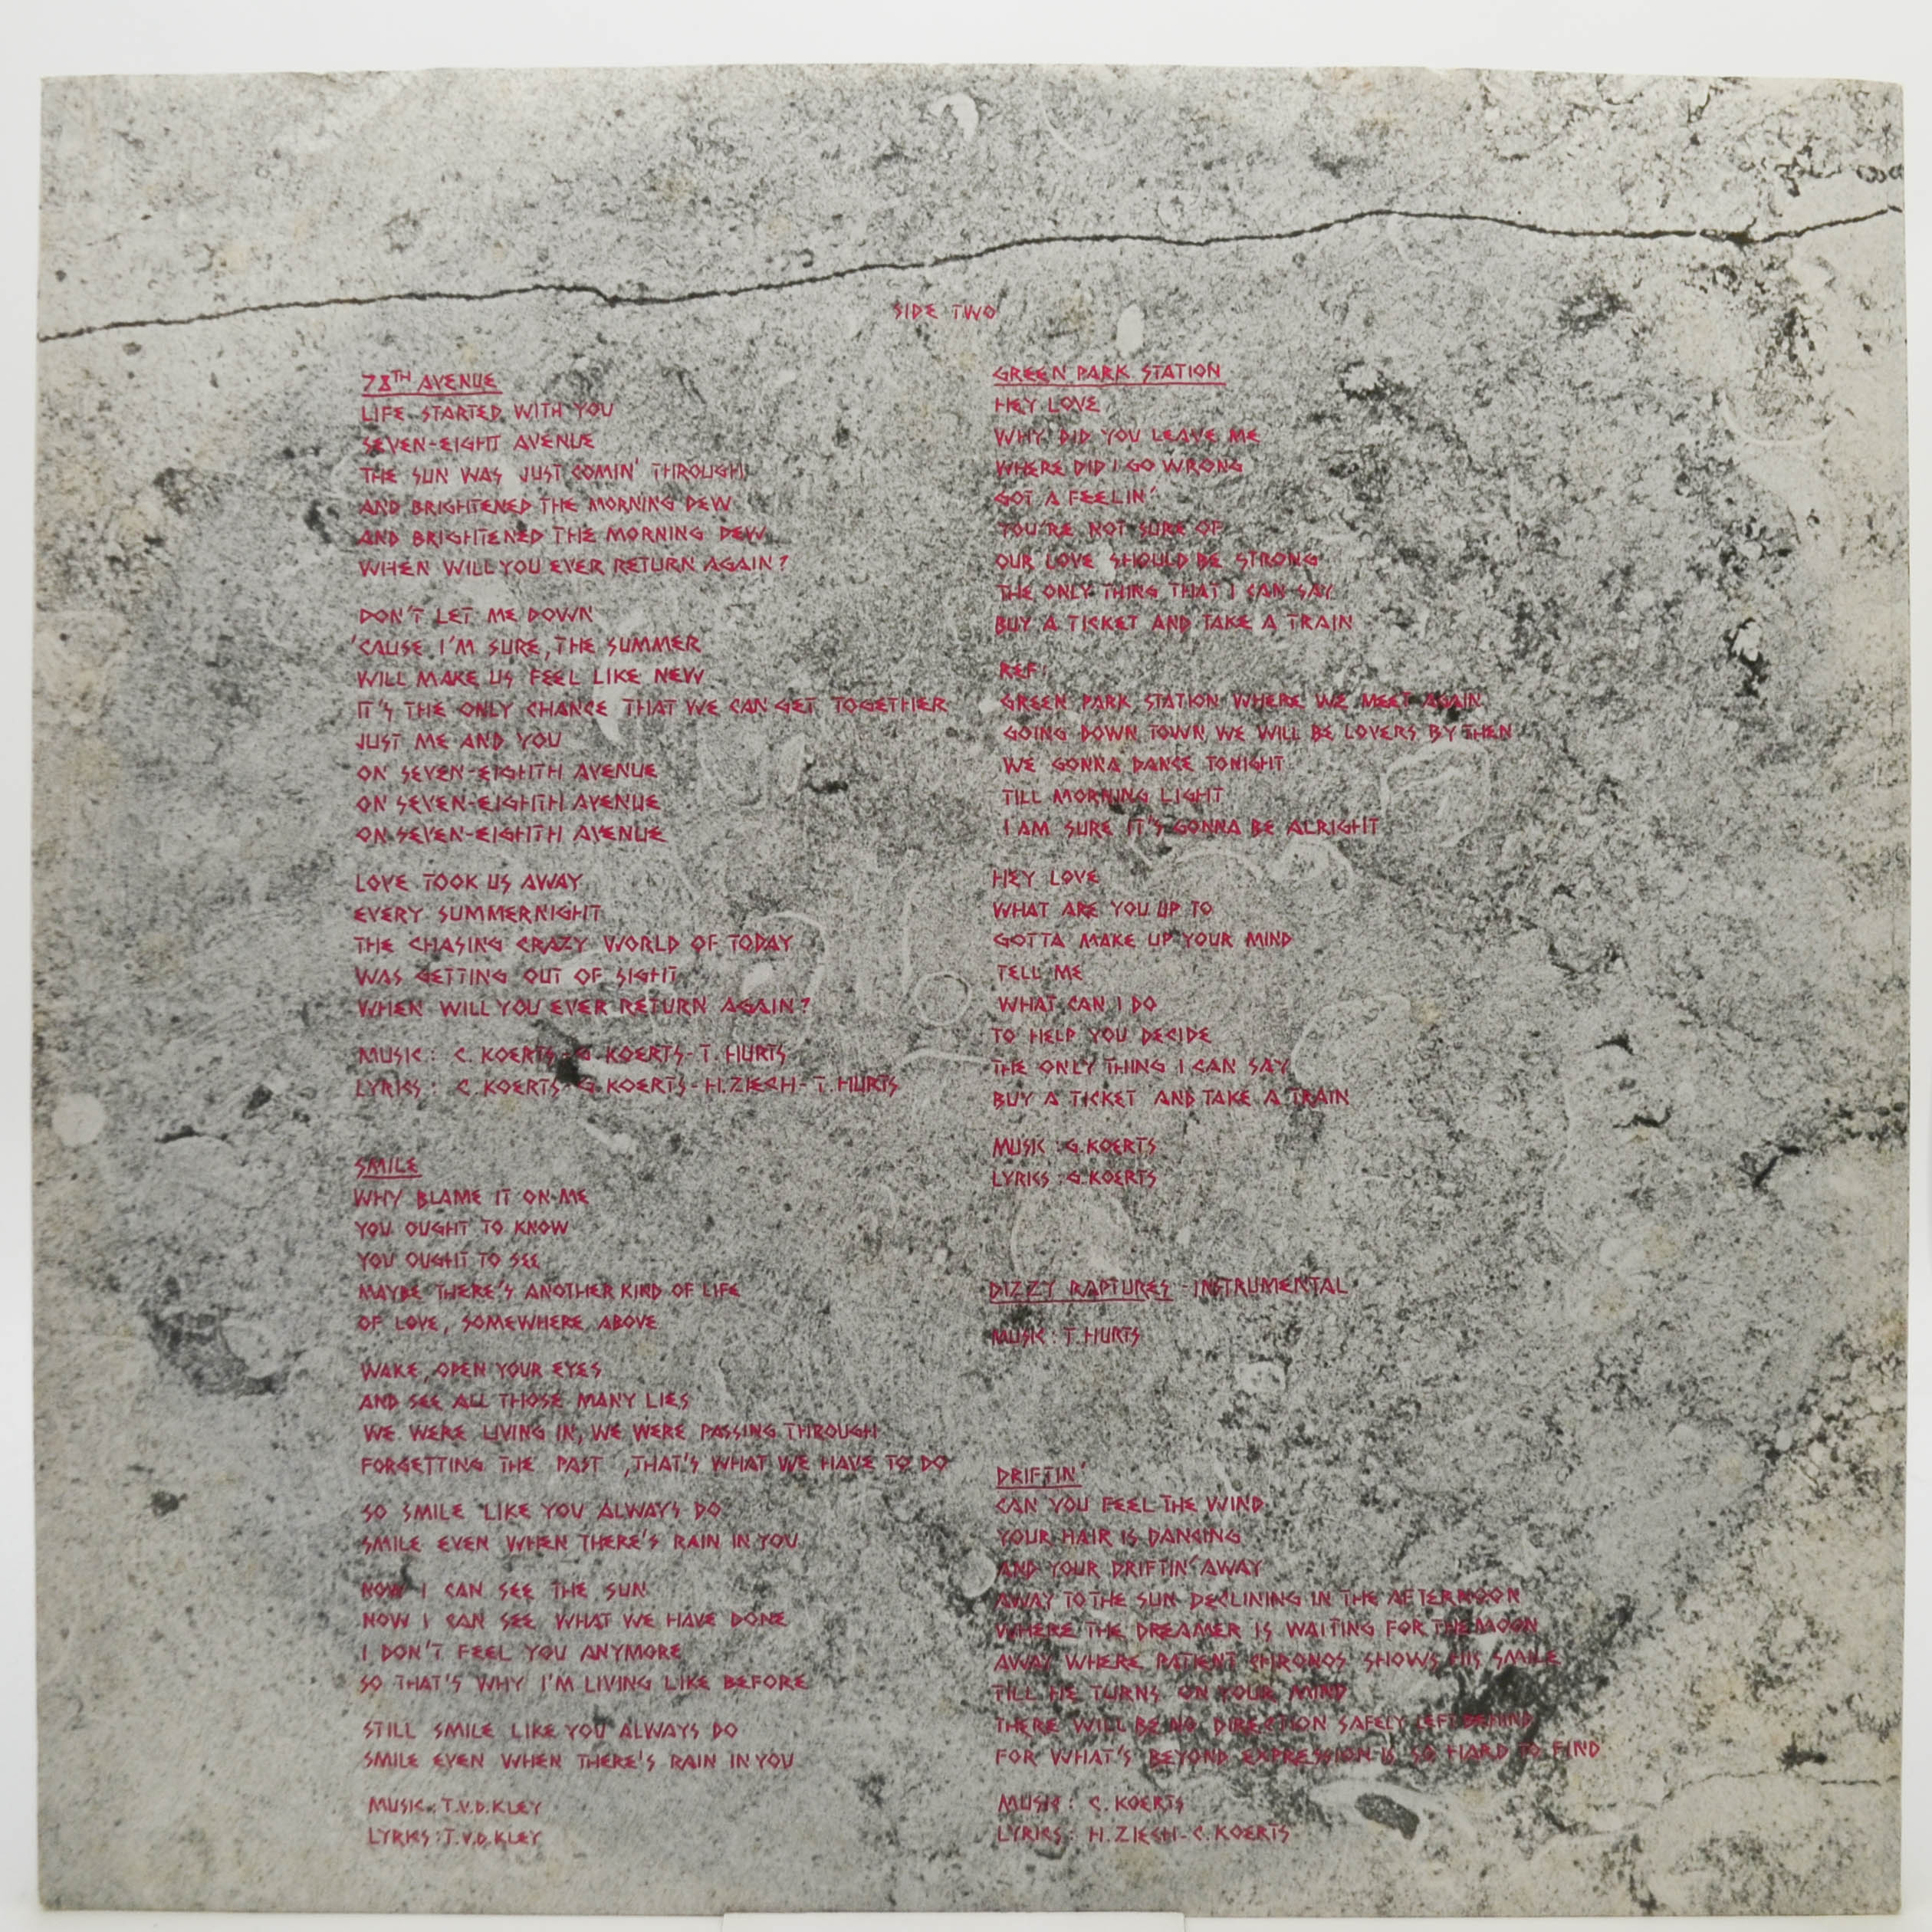 SIDE TWO
78TH AVENUE
LIFE STARTED WITH YOU
SEVEN-EIGHT AVENUE
THE SUN WAS JUST COMIN' THROUGH
AND BRIGHTENED THE MORNING DEW
AND BRIGHTENED THE MORNING DEW
WHEN WILL YOU EVER RETURN AGAIN?
DON'T LET ME DOWN
'CAUSE I'M SURE, THE SUMMER
WILL MAKE US FEEL LIKE NEW
IT'S THE ONLY CHANCE THAT WE CAN GET TOGETHER
JUST ME AND YOU
ON SEVEN-EIGHTH AVENUE
ON SEVEN-EIGHTH AVENUE
ON SEVEN-EIGHTH AVENUE
LOVE TOOK US AWAY
EVERY SUMMERNIGHT
THE CHASING CRAZY WORLD OF TODAY
WAS GETTING OUT OF SIGHT
WHEN WILL YOU EVER RETURN AGAIN?
MUSIC: C. KOERTS-G. KOERTS-T. HURTS
LYRICS: C. KOERTS-G. KOERTS-H.ZIECH-T. HURTS
SMILE
WHY BLAME IT ON ME
YOU OUGHT TO KNOW
YOU OUGHT TO SEE
MAYBE THERE'S ANOTHER KIND OF LIFE
OF LOVE, SOMEWHERE ABOVE
WAKE, OPEN YOUR EYES
AND SEE ALL THOSE MANY LIES
WE WERE LIVING IN, WE WERE PASSING THROUGH
FORGETTING THE PAST, THAT'S WHAT WE HAVE TO DO
SO SMILE LIKE YOU ALWAYS DO
SMILE EVEN WHEN THERE'S RAIN IN YOU
NOW I CAN SEE THE SUN
NOW I CAN SEE WHAT WE HAVE DONE
I DON'T FEEL YOU ANYMORE
SO THAT'S WHY I'M LIVING LIKE BEFORE
STILL SMILE LIKE YOU ALWAYS DO
SMILE EVEN WHEN THERE'S RAIN IN YOU
MUSIC: T.V.D.KLEY
LYRICS: T.V.D.KLEY
GREEN PARK STATION
HEY LOVE
WHY DID YOU LEAVE ME
WHERE DID I GO WRONG
GOT A FEELIN'
YOU'RE NOT SURE OF
OUR LOVE SHOULD BE STRONG
THE ONLY THING THAT I CAN SAY
BUY A TICKET AND TAKE A TRAIN
REF:
GREEN PARK STATION WHERE WE MEET AGAIN
GOING DOWN TOWN WE WILL BE LOVERS BY THEN
WE GONNA DANCE TONIGHT
TILL MORNING LIGHT
I AM SURE IT'S GONNA BE ALRIGHT
HEY LOVE
WHAT ARE YOU UP TO
GOTTA MAKE UP YOUR MIND
TELL ME
WHAT CAN I DO
TO HELP YOU DECIDE
THE ONLY THING I CAN SAY
BUY A TICKET AND TAKE A TRAIN
MUSIC: G.KOERTS
LYRICS: G.KOERTS
DIZZY RAPTURES - INSTRUMENTAL
MUSIC: T.HURTS
DRIFTIN'
CAN YOU FEEL THE WIND
YOUR HAIR IS DANCING
AND YOUR DRIFTIN' AWAY
AWAY TO THE SUN DECLINING IN THE AFTERNOON
WHERE THE DREAMER IS WAITING FOR THE MOON
AWAY WHERE PATIENT CHRONOS SHOWS HIS SMILE
TILL HE TURNS ON YOUR MIND
THERE WILL BE NO DIRECTION SAFELY LEFT BEHIND
FOR WHAT'S BEYOND EXPRESSION IS SO HARD TO FIND
MUSIC: C. KOERTS
LYRICS: H. ZIECH-C. KOERTS